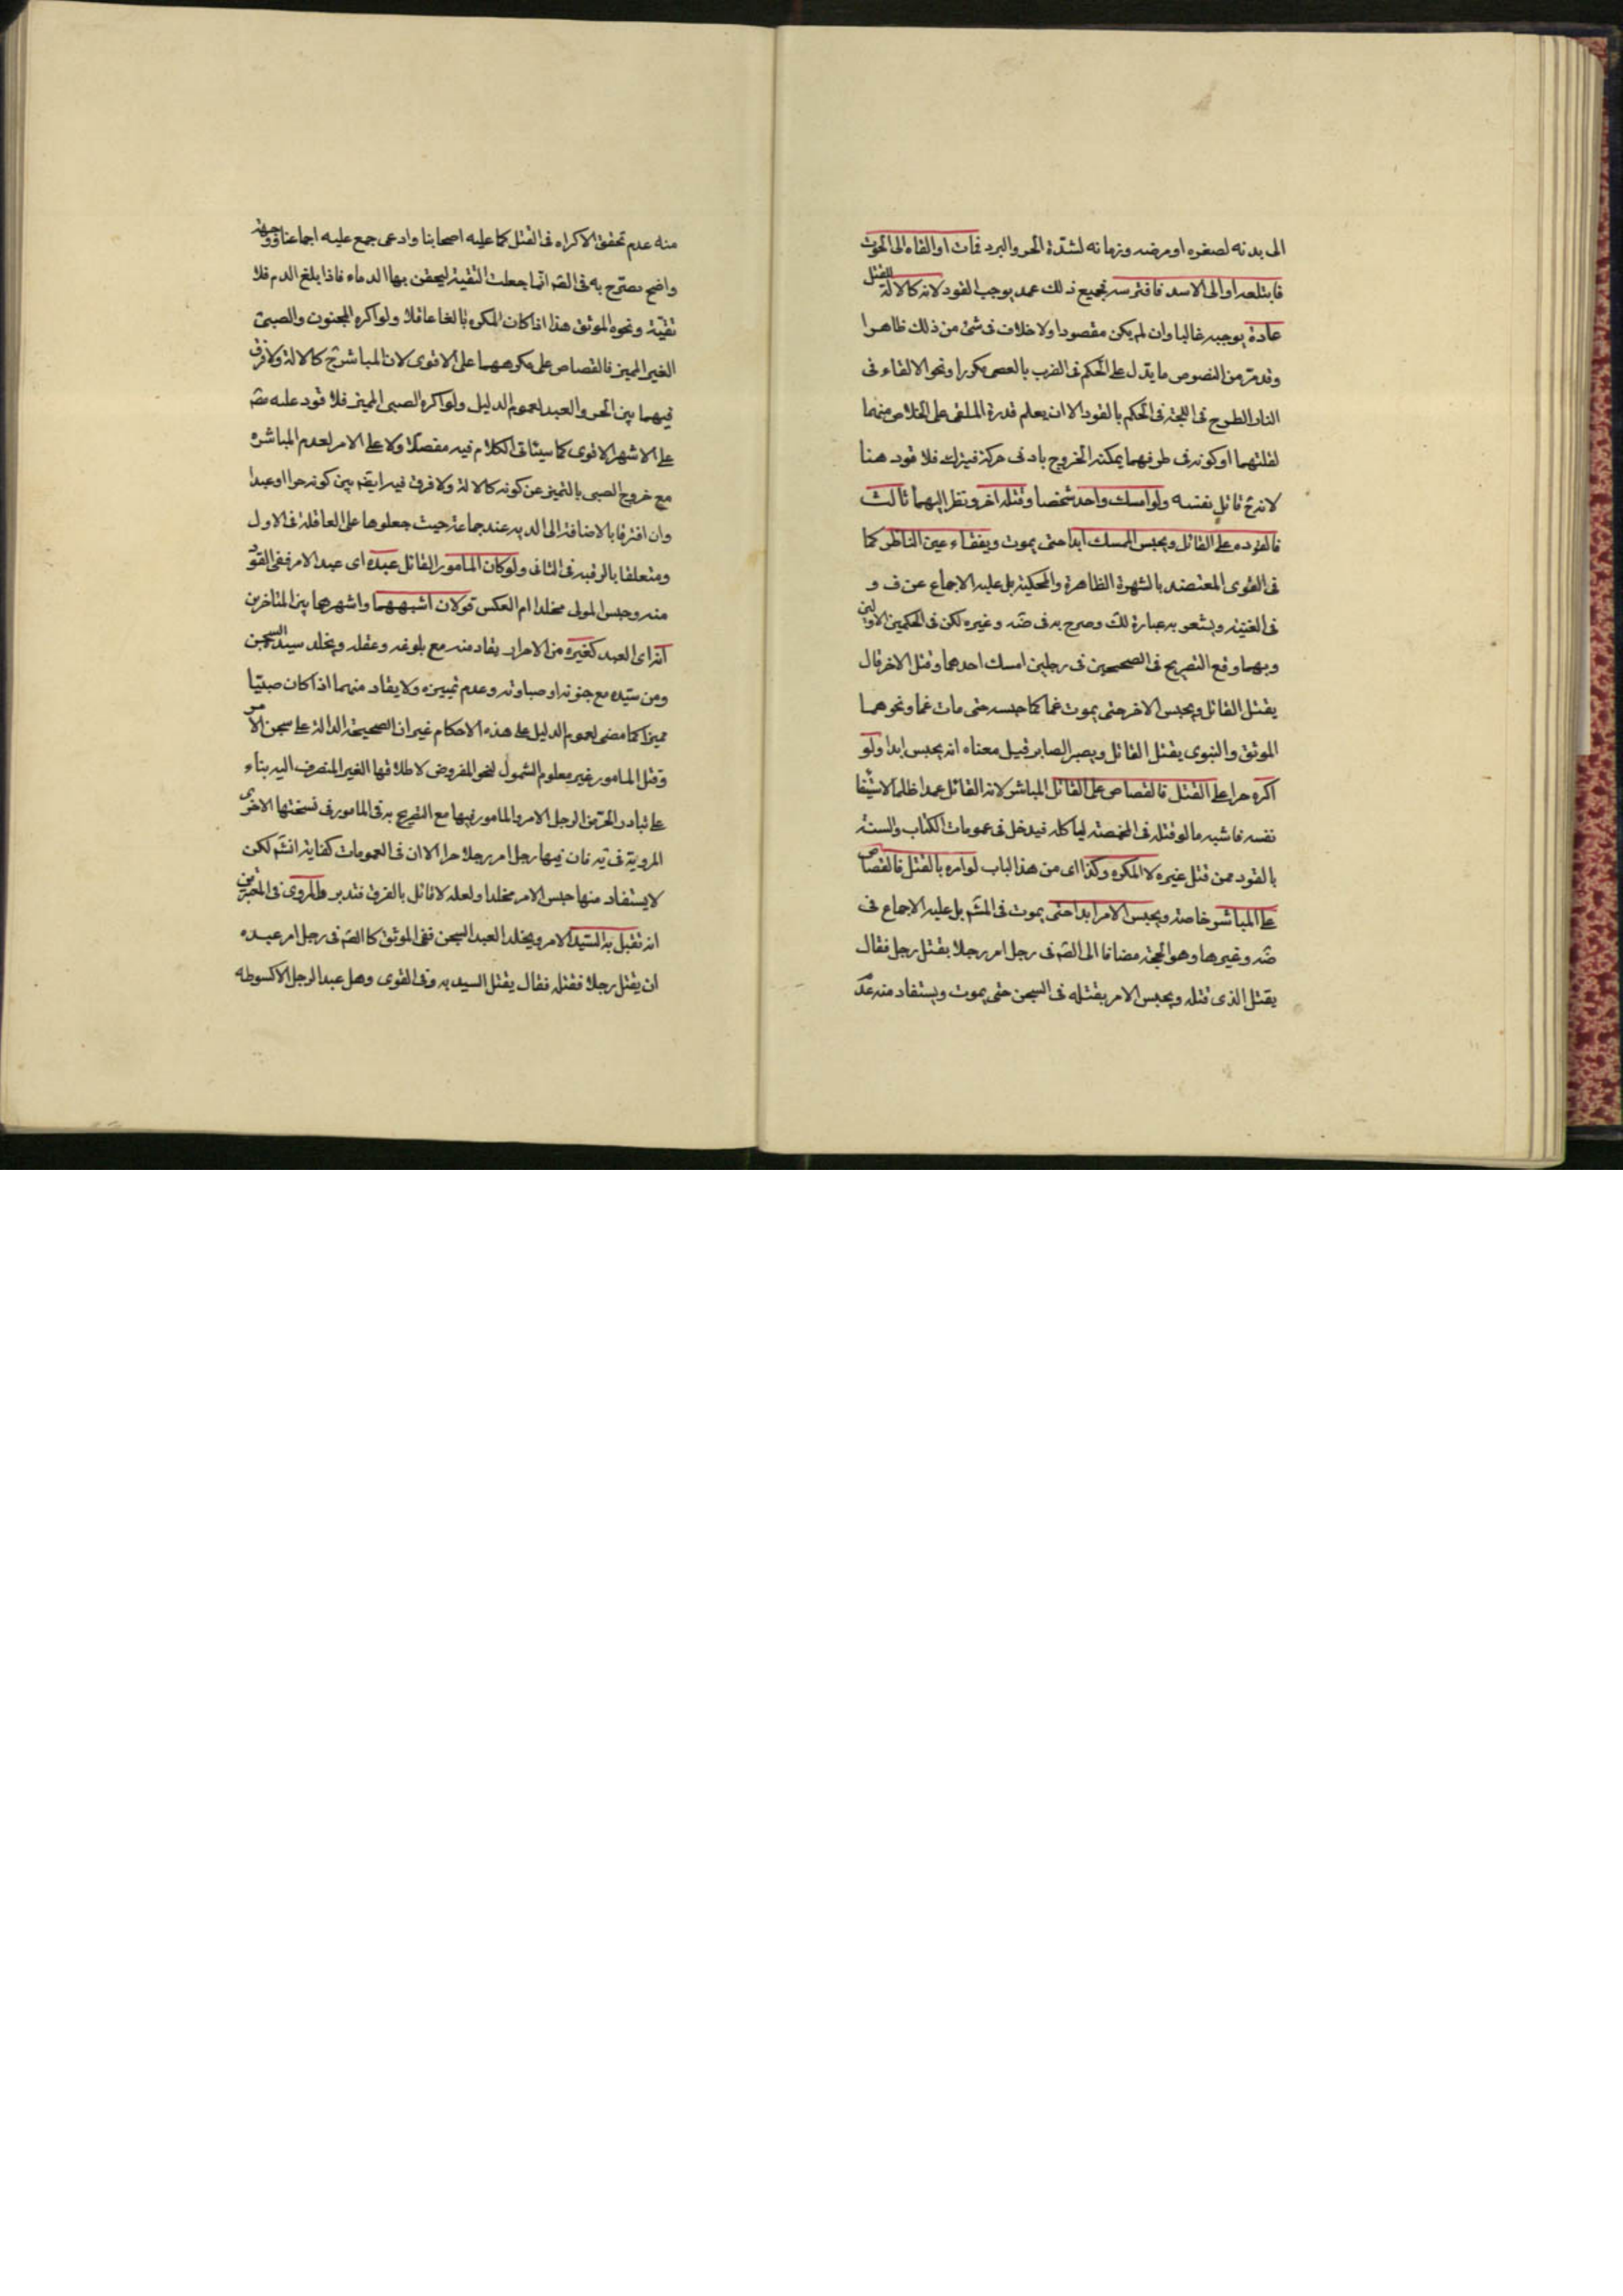 الى بدنه لصغره او مرضه وزمانه لشدة الحر والبرد فمات او القاه الى الحوت
فابتلعه او الى الاسد فافترسه فجميع ذلك عمد يوجب القود لانه كالالة للقتل
عادة يوجبه غالبا وان لم يكن مقصودا ولا خلاف فى شئ من ذلك ظاهرا
وقد مر من النصوص ما يدل على الحكم فى الضرب بالعصى مكررا ونحو الالقاء فى
النار الطرح فى اللجة فى الحكم بالقود الا ان يعلم قدرة الملقى على الخلاص منهما
لقلتهما او كونه فى طرفهما يمكنه الخروج بادنى حركة فيترك فلا قود هنا
لانه ح قاتل نفسه ولو امسك واحد شخصا وقتله اخر ونظر اليهما ثالث
فالقود على القاتل ويحبس الممسك ابدا حتى يموت ويفقاء عين الناظر كما
فى القوى المعتضد بالشهرة الظاهرة والمحكية بل عليه الاجماع عن ف و
فى الغنية ويشعر به عبارة لك وصرح به فى ضه وغيره لكن فى الحكمين الاولين
وبهما وقع التصريح فى الصحيحين فى رجلين امسك احدهما وقتل الاخر قال
يقتل القاتل ويحبس الاخر حتى يموت غما كما حبسه حتى مات غما ونحوهما
الموثق والنبوى يقتل القاتل ويصبر الصابر قيل معناه انه يحبس ابدا ولو
اكره حرا على القتل فالقصاص على القاتل المباشر لانه القاتل عمدا ظلما لاستبقا
نفسه فاشبه ما لو قتله فى المخمصة لياكله فيدخل فى عمومات الكتاب والسنة
بالقود ممن قتل غيره لا المكره وكذا اى من هذا الباب لو امره بالقتل فالقصاص
على المباشر خاصة ويحبس الامر ابدا حتى يموت فى المشهم بل عليه الاجماع فى
ضه وغيرها وهو الحجة مضافا الى الصم فى رجل امر رجلا بقتل رجل فقال
يقتل الذى قتله ويحبس الامر بقتله فى السجن حتى يموت ويستفاد منه عدم
منه عدم تحقق الاكراه فى القتل كما عليه اصحابنا وادعى جمع عليه اجماعنا ووجهه
واضح مصرح به فى الصم انما جعلت التقية ليحقن بها الدماء فاذا بلغ الدم فلا
تقية ونحوه الموثق هذا اذا كان المكره بالغا عاقلا ولو اكره المجنون والصبى
الغير المميز فالقصاص على مكرههما على الاقوى لان المباشر ح كالالة ولا فرق
فيهما بين الحر والعبد لعموم الدليل ولو اكره الصبى المميز فلا قود عليه مضم
على الاشهر الاقوى كما سيئاتى الكلام فيه مفصلا ولا على الامر لعدم المباشره
مع خروج الصبى بالتميز عن كونه كالالة ولا فرق فيه ايضم بين كونه حرا او عبدا
وان افترقا بالاضافة الى الديه عند جماعة حيث جعلوها على العاقلة فى الاول
ومتعلقا بالرقبة فى الثانى ولو كان المامور القاتل عبده اى عبد الامر ففى القود
منه وحبس المولى مخلدا ام العكس قولان اشبههما واشهرهما بين المتاخرين
انه اى العبد كغيره من الاحرار يقاد منه مع بلوغه وعقله ويخلد سيده السجن
ومن سيده مع جنونه او صباوته وعدم تمييزه ولا يقاد منهما اذا كان صبيا
مميزا كما مضى لعموم الدليل على هذه الاحكام غير ان الصحيحة الدالة على سجن الامر
وقتل المامور غير معلوم الشمول لنحو المفروض لاطلاقها الغير المنصرف اليه بناء
على تبادر الحر من الرجل الامر والمامور فيها مع التصريح به فى المامور فى نسختها الاخرى
المروية فى يه فان فيها رجل امر رجلا حرا الا ان فى العمومات كفاية انشم لكن
لا يستفاد منها حبس الامر مخلدا ولعله لا قائل بالفرق فتدبر والمروى فى الخبرين
انه تقبل به السيد الامر ويخلد العبد السجن ففى الموثق كالصم فى رجل امر عبده
ان يقتل رجلا فقتله فقال يقتل السيد به وفى القوى وهل عبد الرجل الا كسوطه